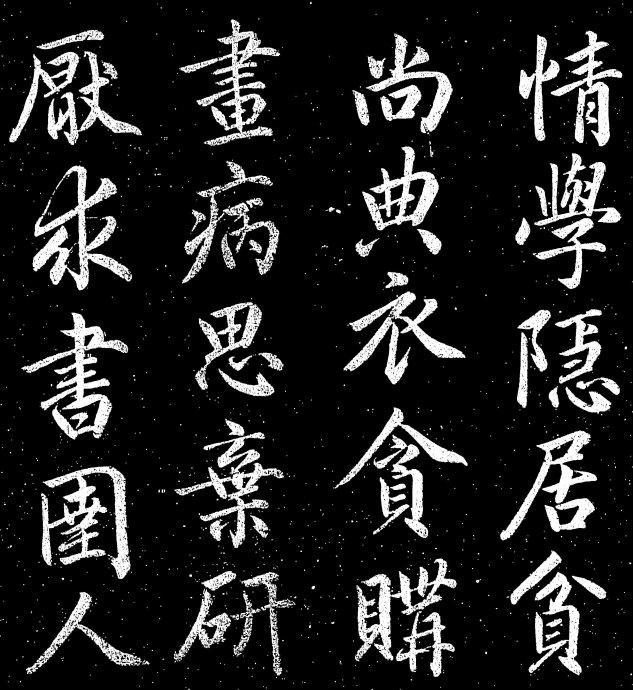 情學隱居貧
尚典衣貪購
畫病思棄研
厭求書圉人